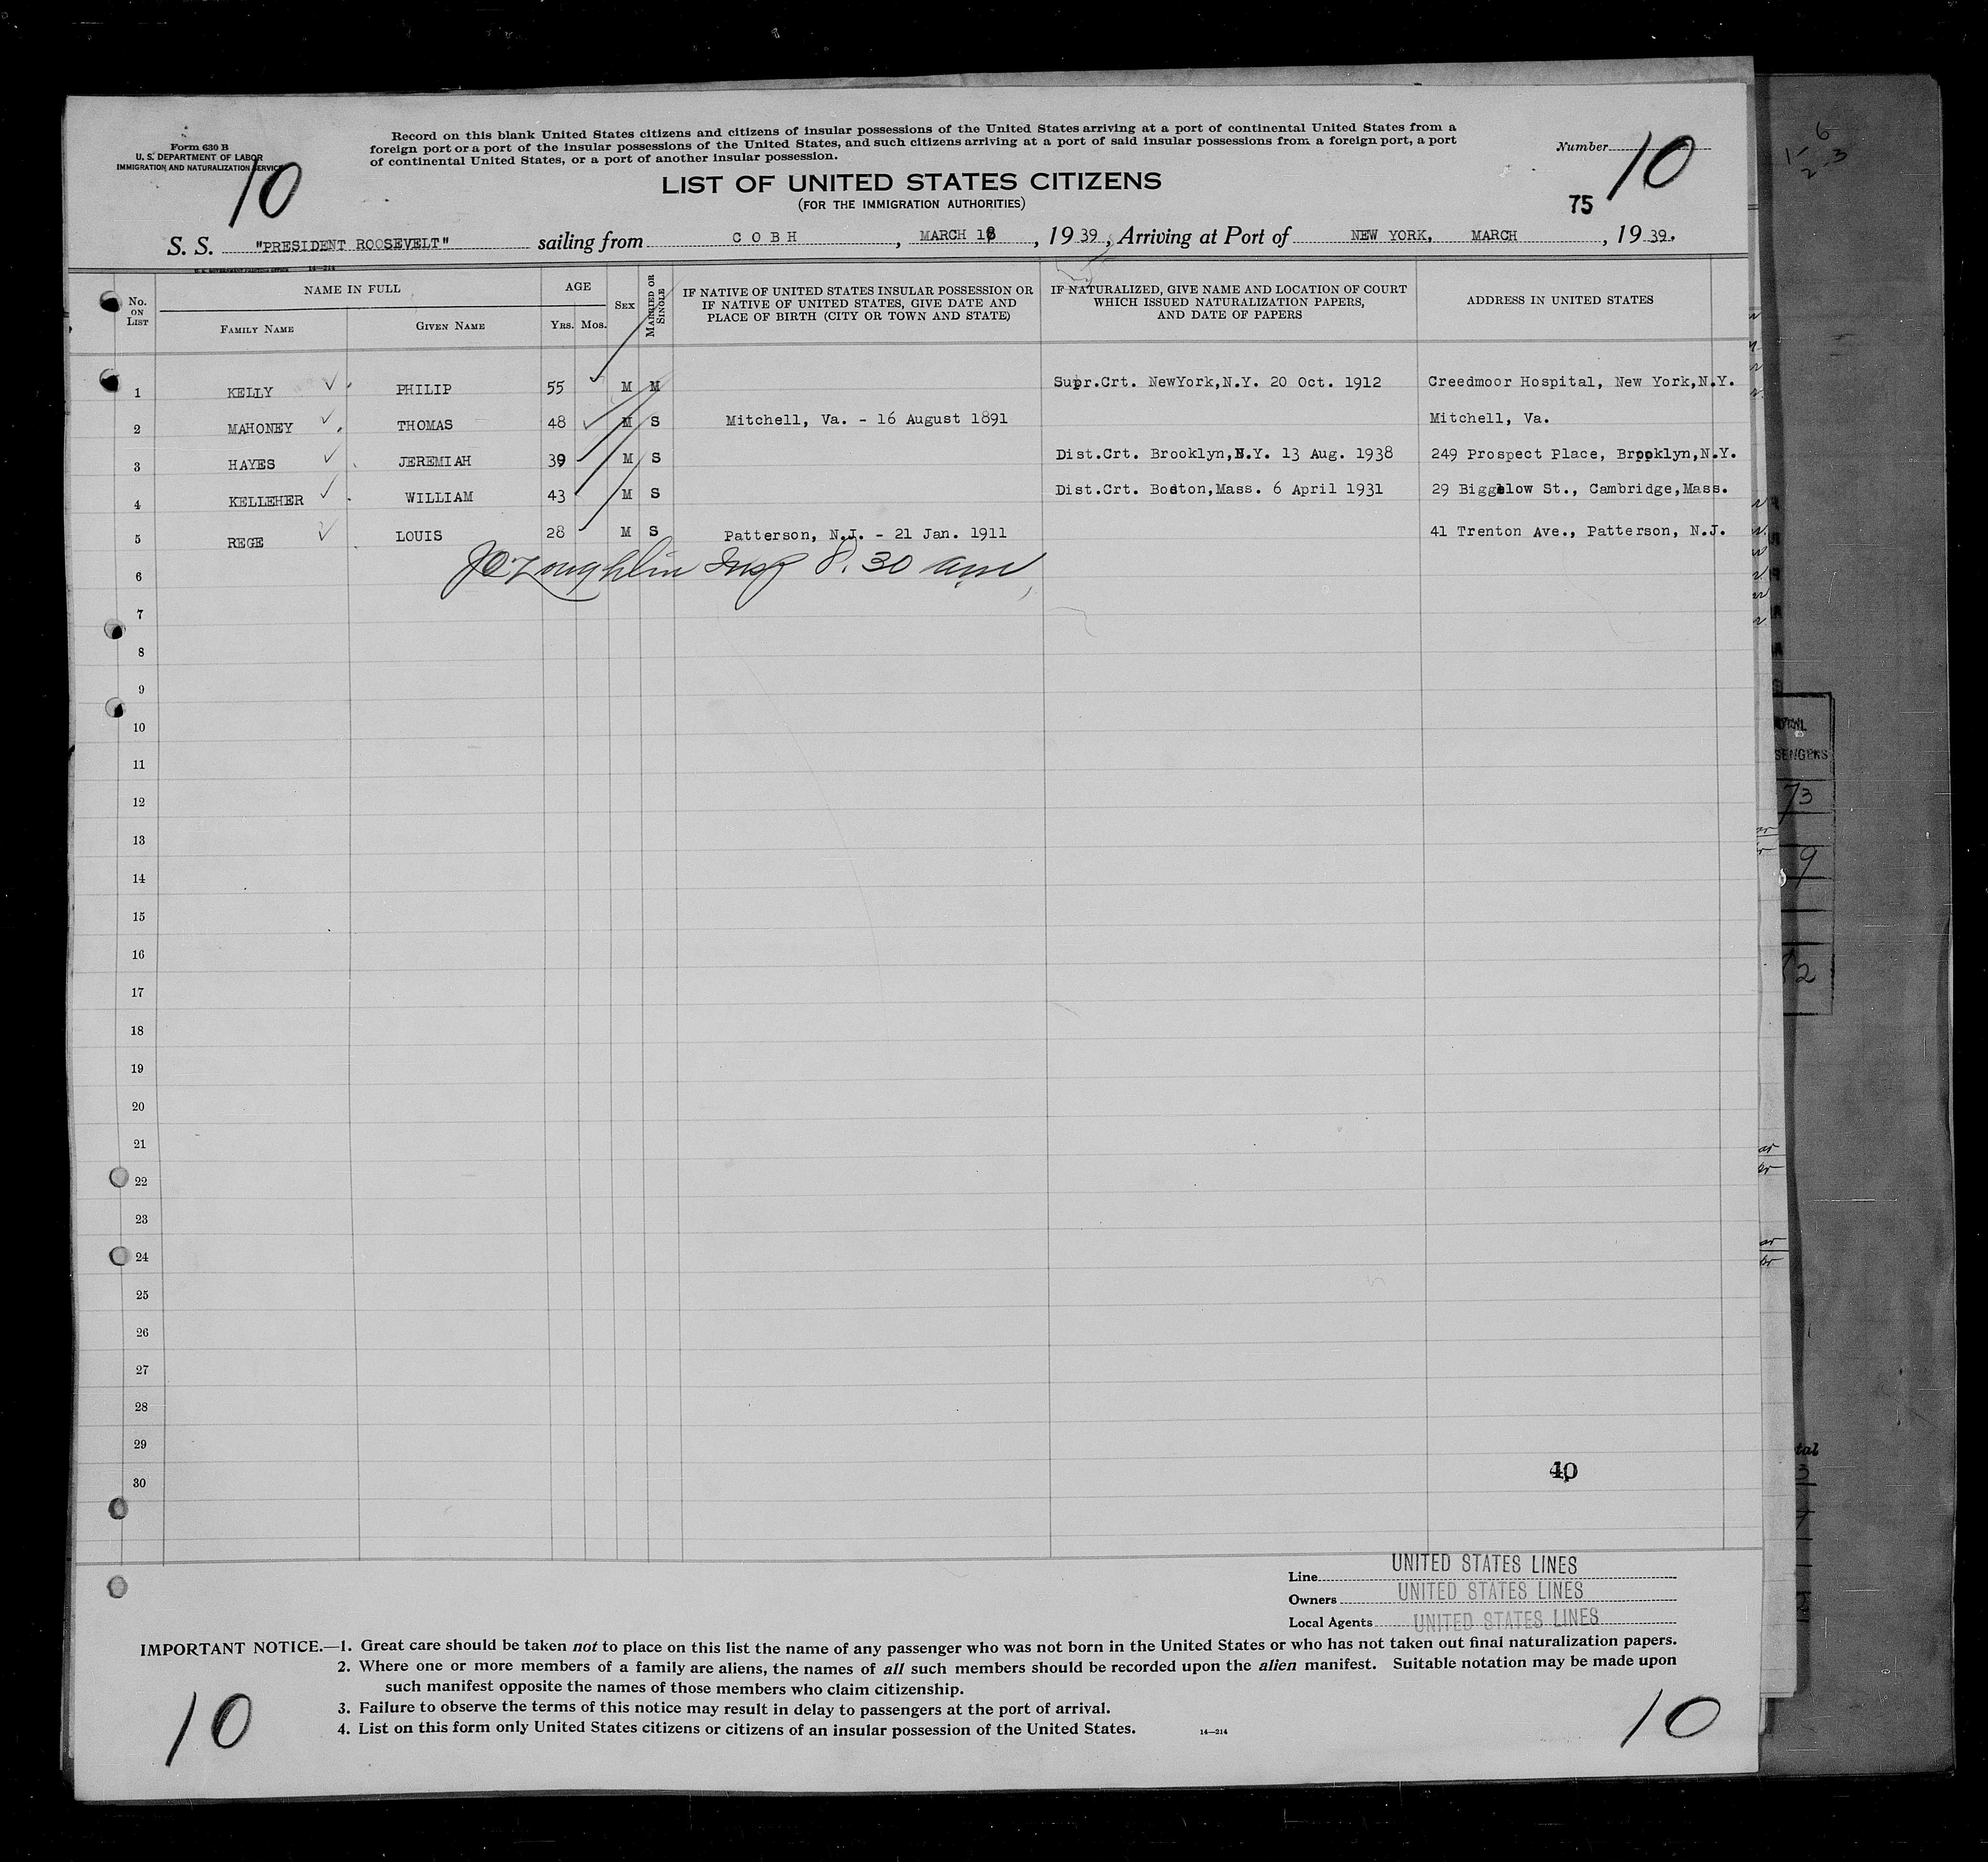 Form 630 B
U. S. DEPARTMENT OF LABOR
IMMIGRATION AND NATURALIZATION SERVICE
10
Record on this blank United States citizens and citizens of insular possessions of the United States arriving at a port of continental United States from a
foreign port or a port of the insular possessions of the United States, and such citizens arriving at a port of said insular possessions from a foreign port, a port
of continental United States, or a port of another insular possession.
Number 10
LIST OF UNITED STATES CITIZENS
(FOR THE IMMIGRATION AUTHORITIES)
75
S. S. "PRESIDENT ROOSEVELT" sailing from COBH, MARCH 18, 1939, Arriving at Port of NEW YORK, MARCH, 1939.
No. ON LIST
NAME IN FULL
FAMILY NAME
GIVEN NAME
AGE
YRS. MOS.
SEX
MARRIED OR SINGLE
IF NATIVE OF UNITED STATES INSULAR POSSESSION OR
IF NATIVE OF UNITED STATES, GIVE DATE AND
PLACE OF BIRTH (CITY OR TOWN AND STATE)
IF NATURALIZED, GIVE NAME AND LOCATION OF COURT
WHICH ISSUED NATURALIZATION PAPERS,
AND DATE OF PAPERS
ADDRESS IN UNITED STATES
1 KELLY PHILIP 55 M M Supr.Crt. NewYork,N.Y. 20 Oct. 1912 Creedmoor Hospital, New York,N.Y.
2 MAHONEY THOMAS 48 M S Mitchell, Va. - 16 August 1891 Mitchell, Va.
3 HAYES JEREMIAH 39 M S Dist.Crt. Brooklyn,N.Y. 13 Aug. 1938 249 Prospect Place, Brooklyn,N.Y.
4 KELLEHER WILLIAM 43 M S Dist.Crt. Boston,Mass. 6 April 1931 29 Biggelow St., Cambridge,Mass.
5 REGE LOUIS 28 M S Patterson, N.J. - 21 Jan. 1911 41 Trenton Ave., Patterson, N.J.
JO'Loughlin Insp 8.30 am
6
7
8
9
10
11
12
13
14
15
16
17
18
19
20
21
22
23
24
25
26
27
28
29
30
40
Line UNITED STATES LINES
Owners UNITED STATES LINES
Local Agents UNITED STATES LINES
IMPORTANT NOTICE.—1. Great care should be taken not to place on this list the name of any passenger who was not born in the United States or who has not taken out final naturalization papers.
2. Where one or more members of a family are aliens, the names of all such members should be recorded upon the alien manifest. Suitable notation may be made upon
such manifest opposite the names of those members who claim citizenship.
3. Failure to observe the terms of this notice may result in delay to passengers at the port of arrival.
4. List on this form only United States citizens or citizens of an insular possession of the United States.
14—214
10
10